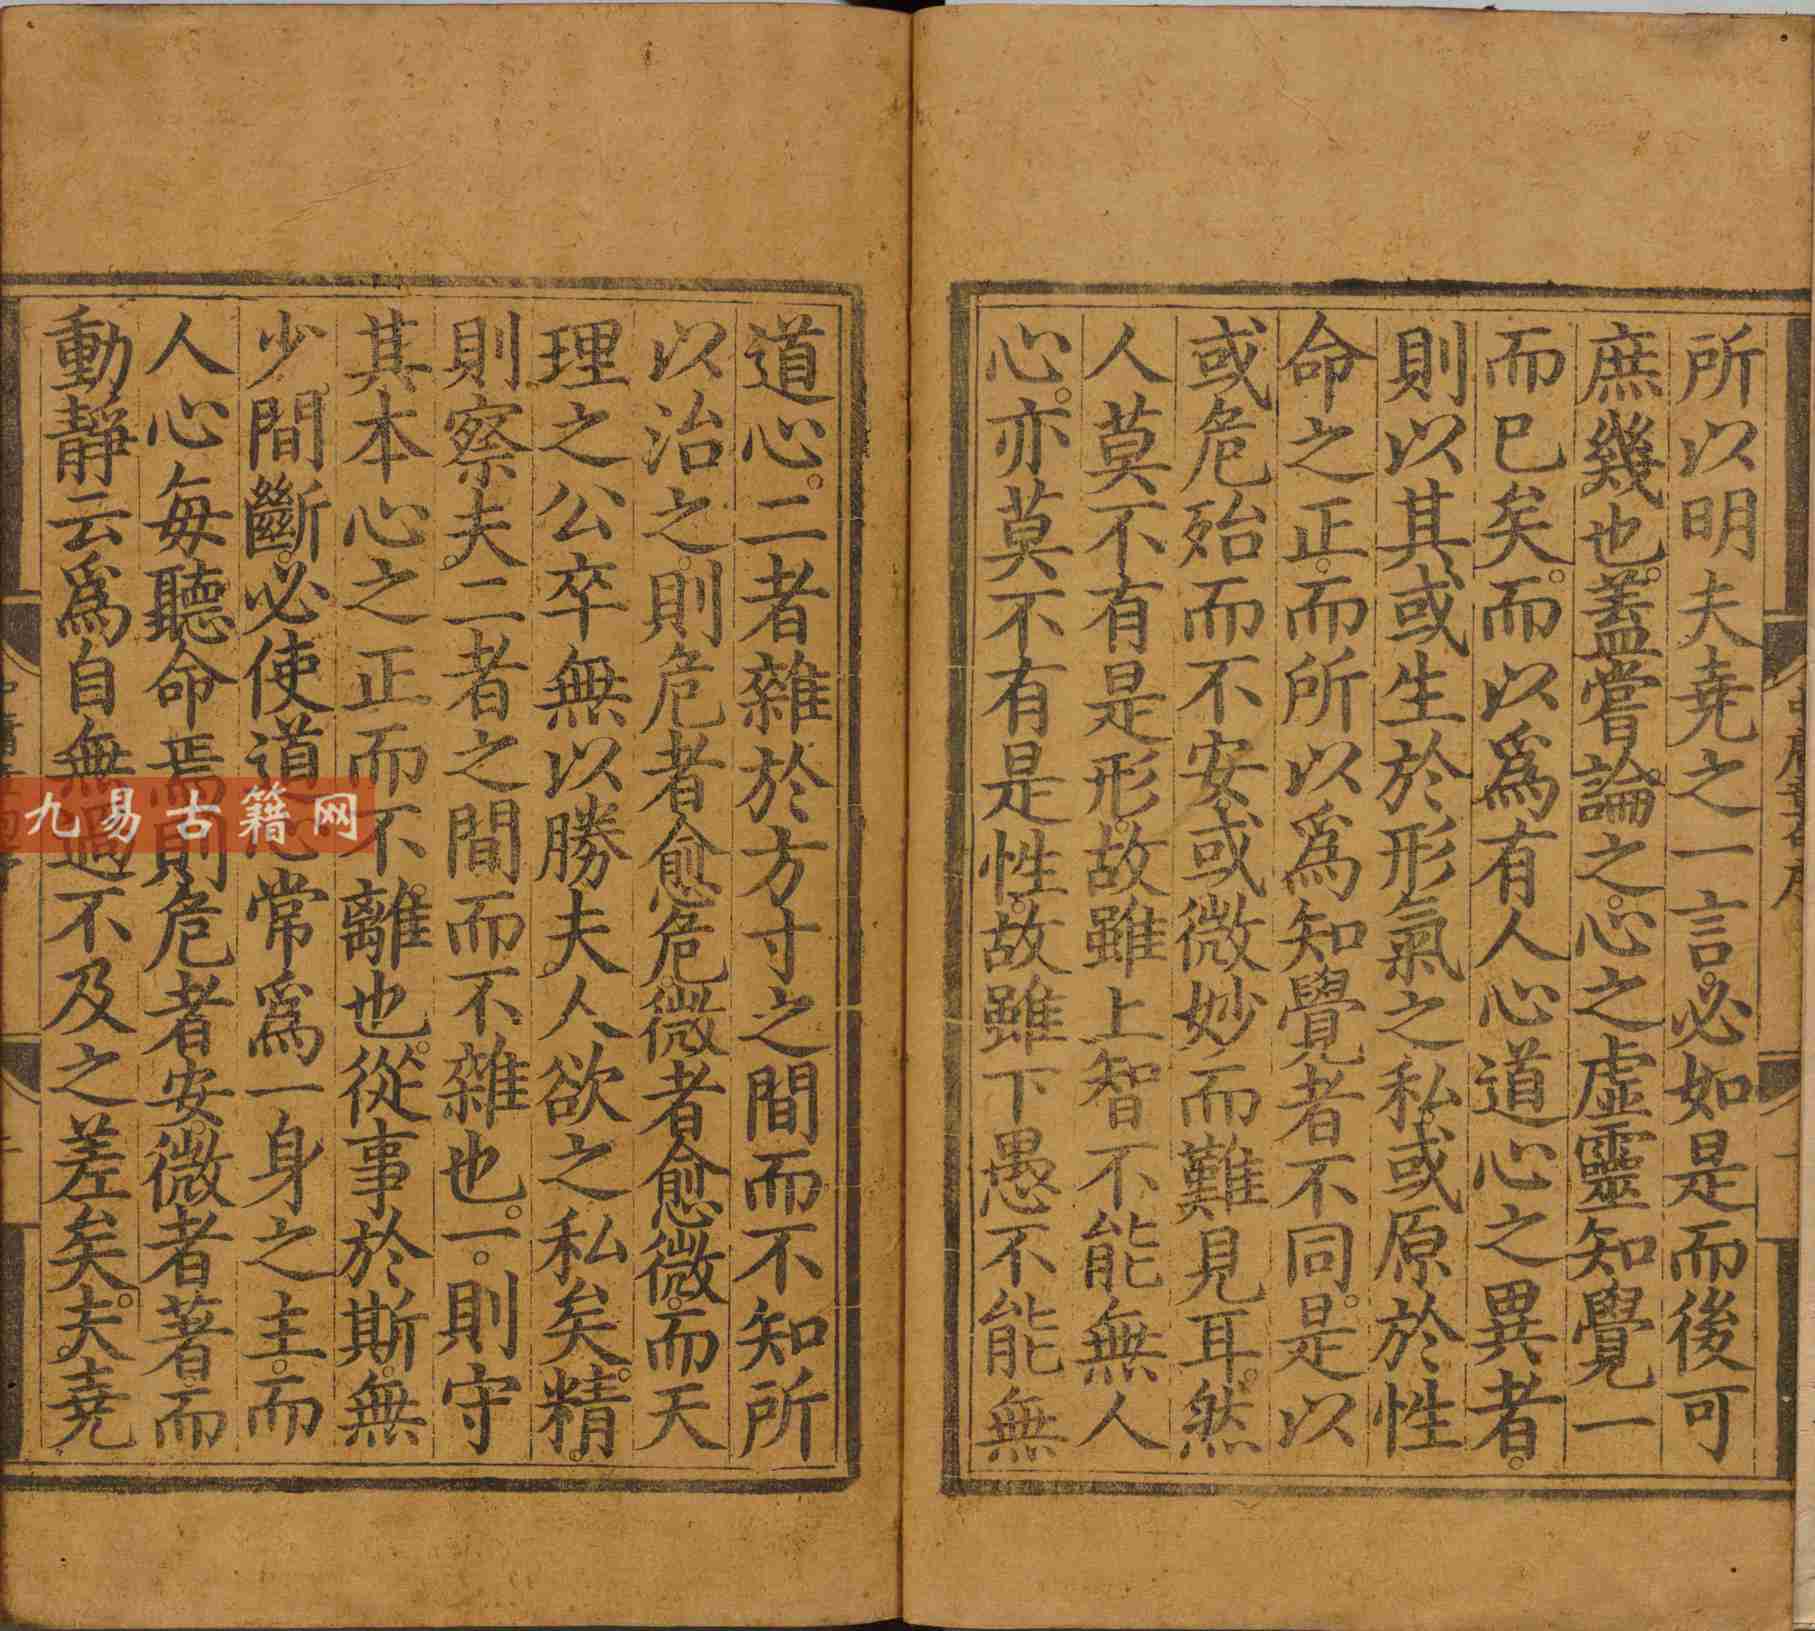 所以明夫堯之一言。必如是而後可
庶幾也。蓋嘗論之。心之虛靈知覺一
而已矣。而以爲有人心道心之異者。
則以其或生於形氣之私。或原於性
命之正。而所以爲知覺者不同。是以
或危殆而不安。或微妙而難見耳。然
人莫不有是形。故雖上智不能無人
心。亦莫不有是性。故雖下愚不能無
道心。二者雜於方寸之間而不知所
以治之。則危者愈危。微者愈微。而天
理之公卒無以勝夫人欲之私矣。精。
則察夫二者之間而不雜也。一。則守
其本心之正而不離也。從事於斯。無
少間斷。必使道心常爲一身之主。而
人心每聽命焉。則危者安。微者著。而
動靜云爲自無過不及之差矣。夫堯
九易古籍网